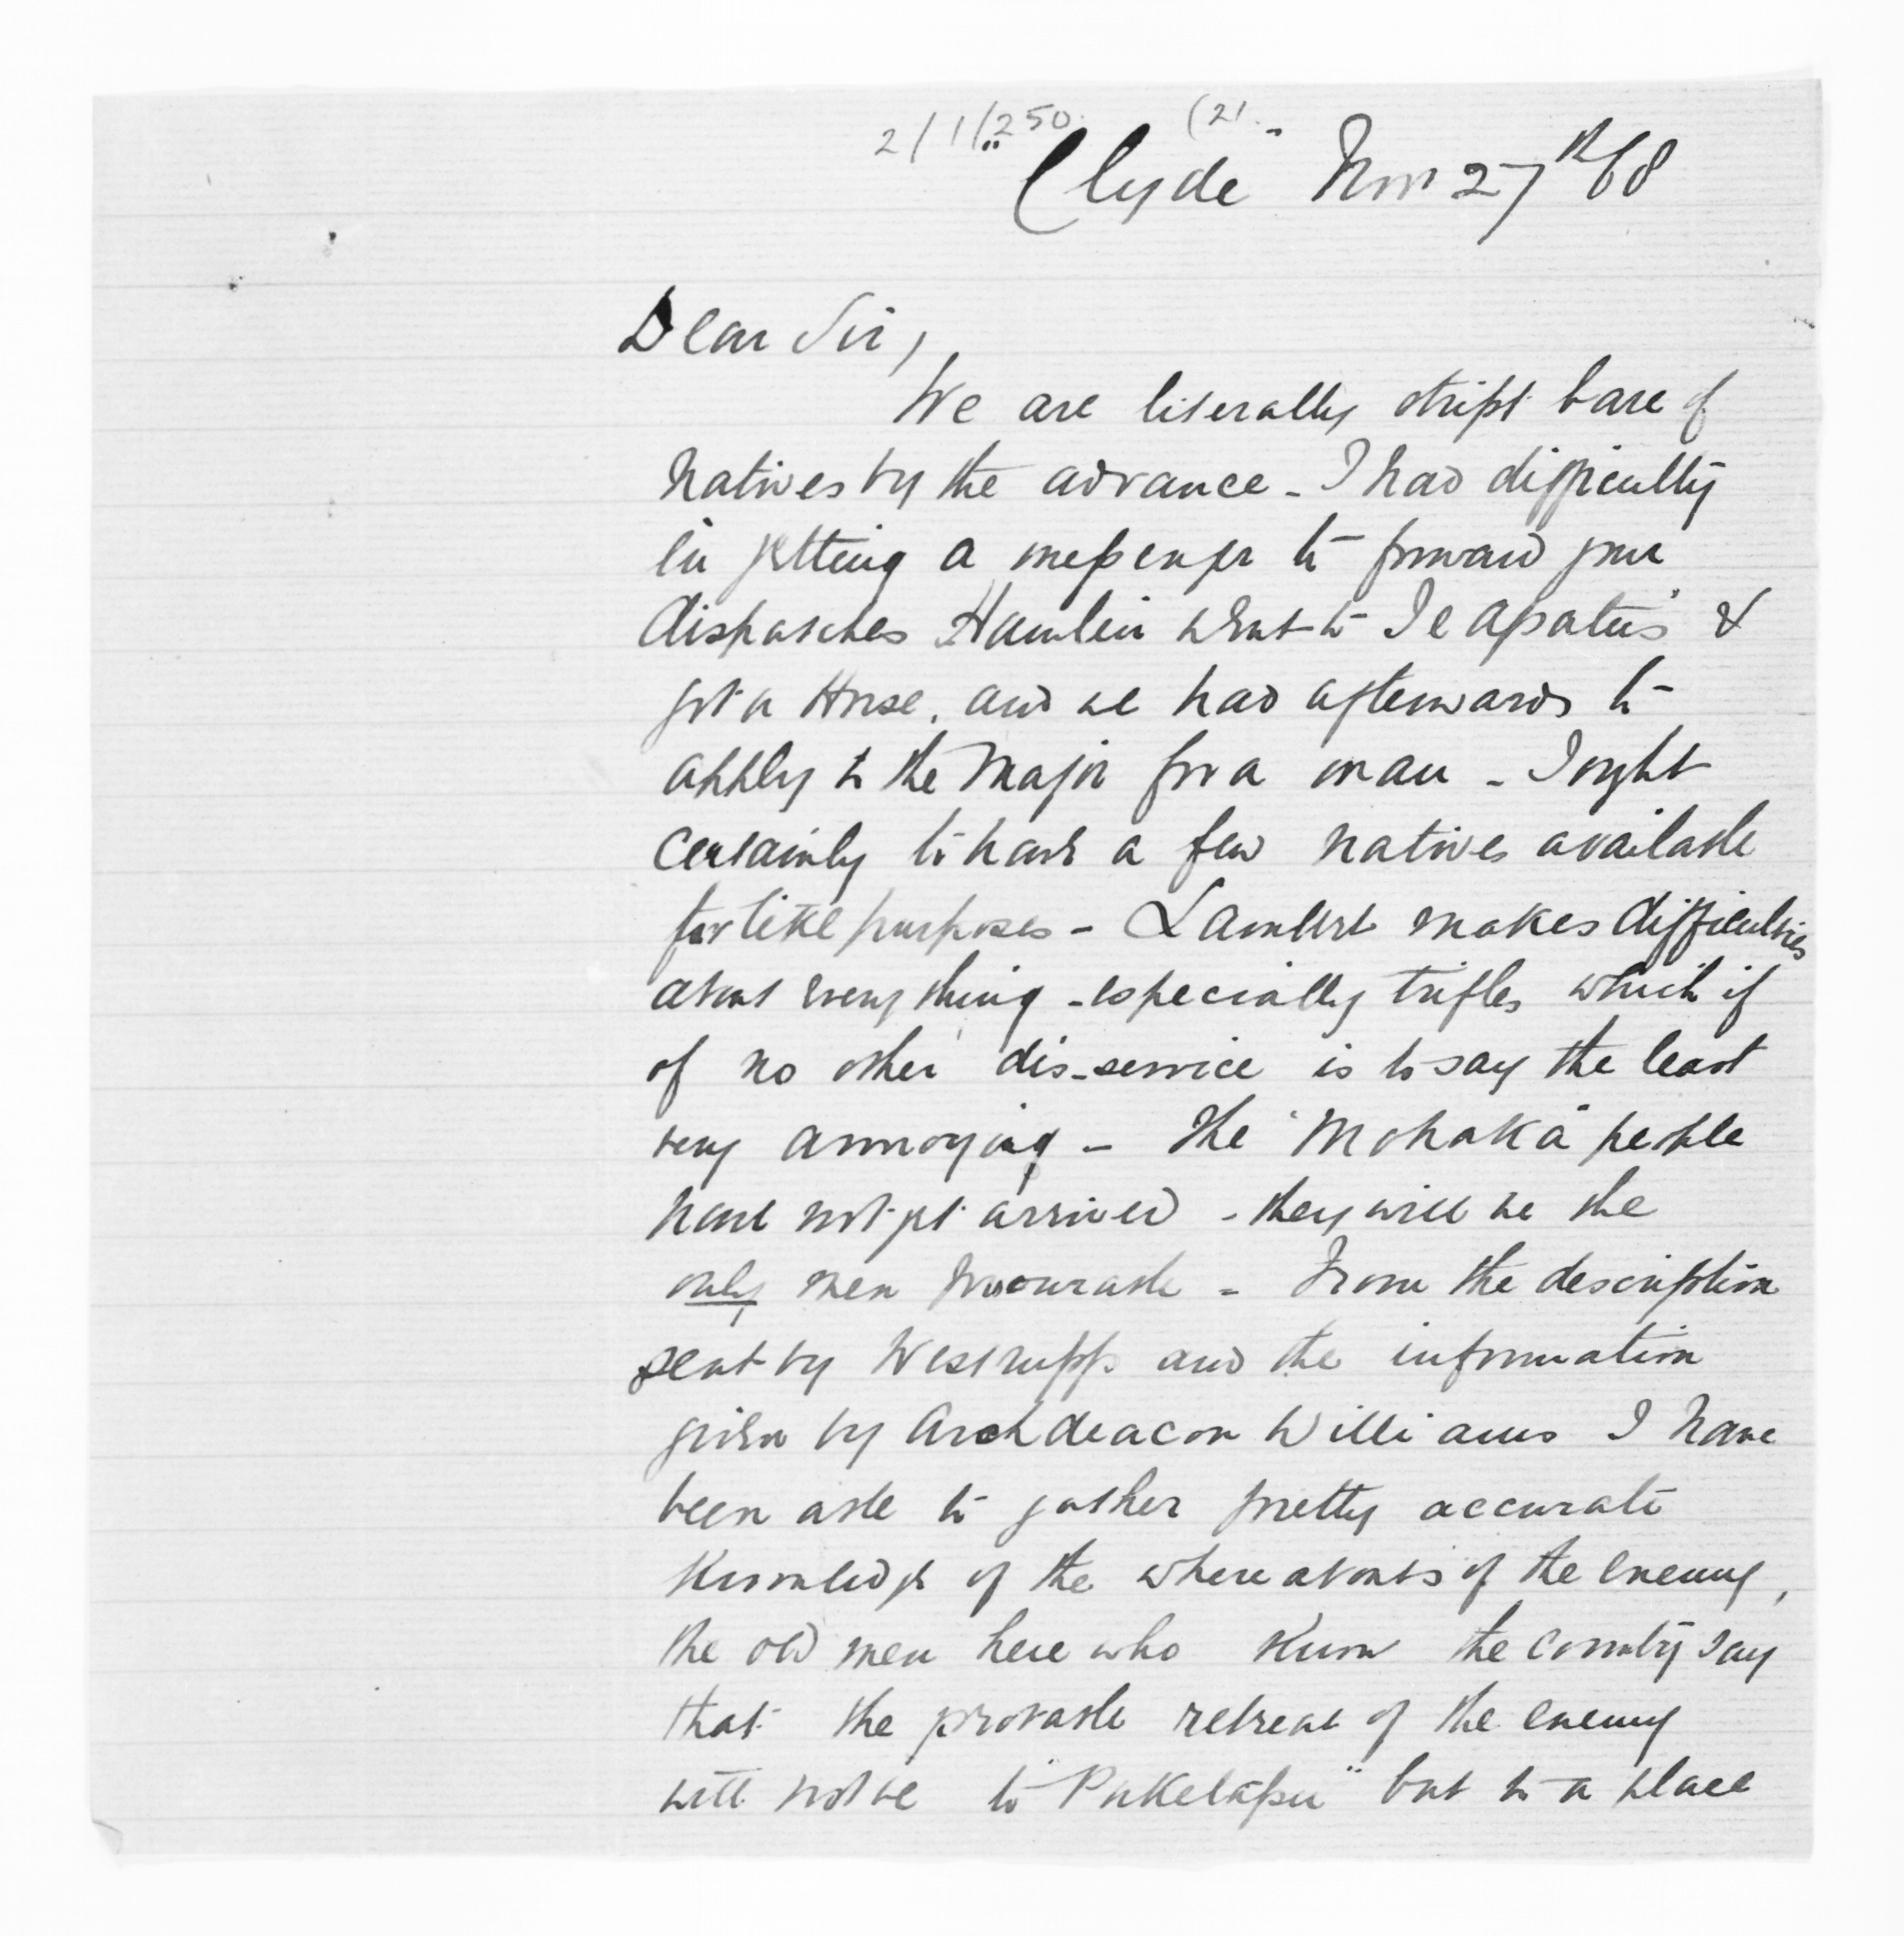 2/1/250 (21.
"Clyde" Nov 27th 68
Dear Sir,
We are literally stript bare of
Natives by the advance - I had difficulty
in getting a messenger to forward your
dispatches Hamlin went to Te Apatu's &
got a Horse, and we had afterwards to
apply to the Major for a man - I ought
certainly to have a few natives available
for like purposes - Lambert makes difficulties
about everything - especially trifles which if
of no other dis-service is to say the least
very annoying - The "Mohaka" people
have not yet arrived - they will be the
only men procurable - From the description
sent by Westrupp and the information
given by Archdeacon Williams I have
been able to gather pretty accurate
Knowledge of the whereabouts of the enemy,
the old men here who know the country say
that the probable retreat of the enemy
will not be to "Puketapu" but to a place